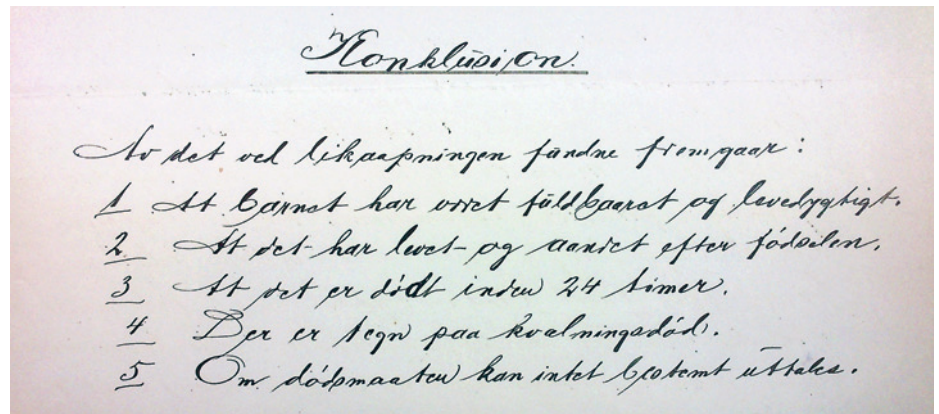 Konklusion.
Av det ved likaapningen fundne fremgaar:
1 At barnet har været fuldbaaret og levedygtigt.
2 At det har levet og aandet efter fødselen.
3 At det er dødt inden 24 timer.
4 Der er tegn paa kvalningsdød.
5 Om dødsmaaten kan intet bestemt uttales.